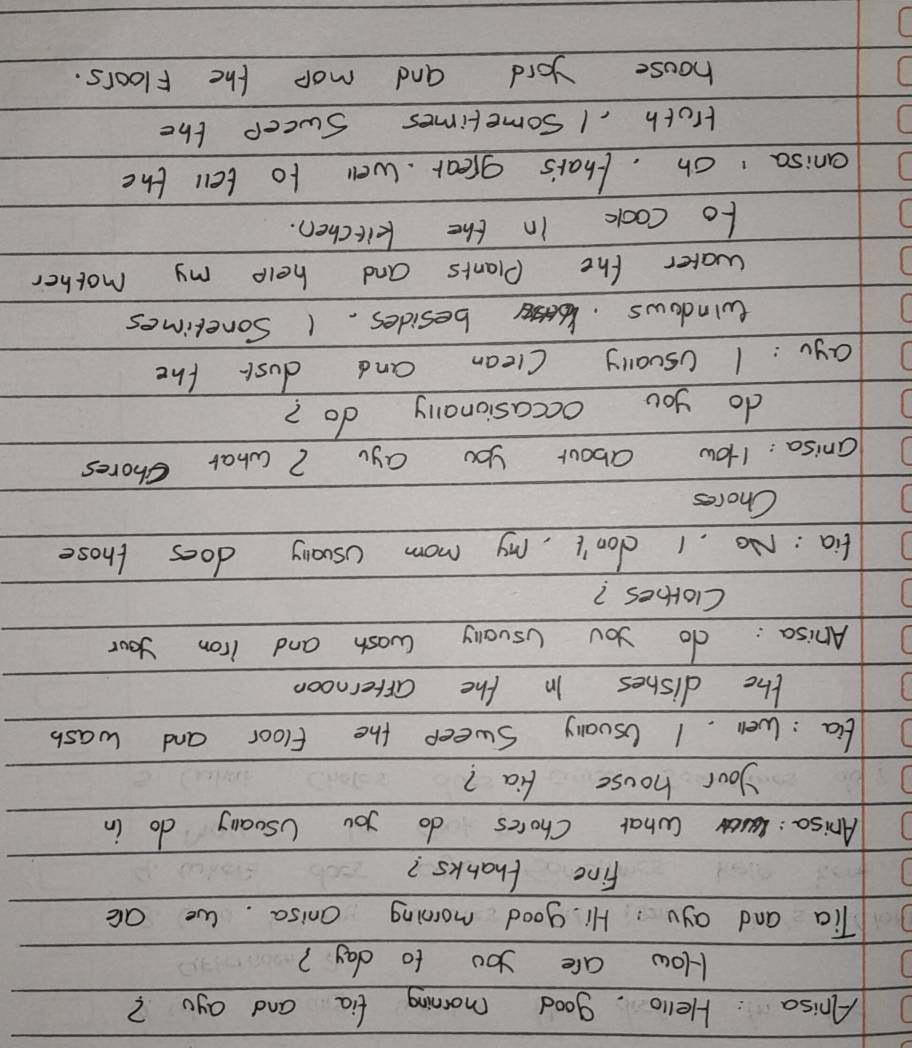 Anisa : Hello. good morning tia and ayu ?
How are you to day ?
Tia and ayu : Hi. good morning anisa. we are
Fine thanks ?
Anisa : What Chores do you Usually do in
your house tia ?
tia : Well. I Usually Sweep the Floor and wash
the dishes in the afternoon
Anisa : do you Usually wash and Iron your
Clothes ?
tia : No. I don't. My mom Usually does those
Chores
anisa : How about you ayu ? what Chores
do you occasionally do ?
ayu : I Usually Clean and dust the
windows. besides. I Sometimes
water the Plants and help my mother
to Cook in the kitchen.
anisa : Oh. that's great. Well to tell the
truth. I Sometimes Sweep the
house yard and mop the Floors.